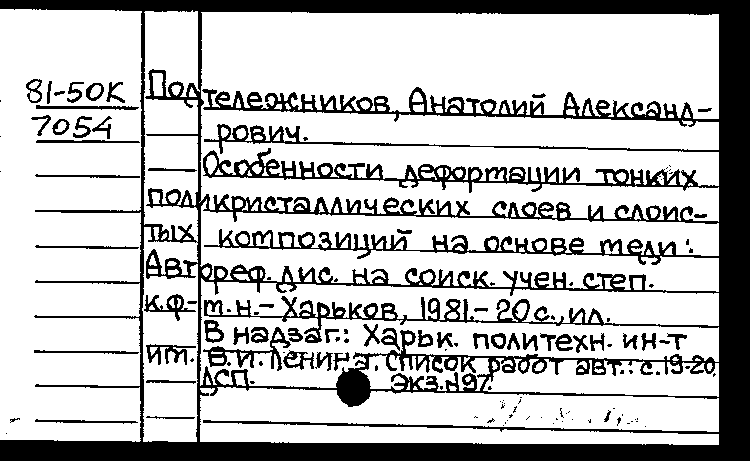 81-50К
7054
Подтележников, Анатолий Александ-
рович.
Особенности деформации тонких
поликристаллических слоев и слоис-
тых композиций на основе меди:
Автореф. дис. на соиск. учен. степ.
к.ф.-м.н.- Харьков, 1981.- 20 с., ил.
В надзаг.: Харьк. политехн. ин-т
им. В.И. Ленина. Список работ авт.: с.19-20.
ДСП. Экз.№97.